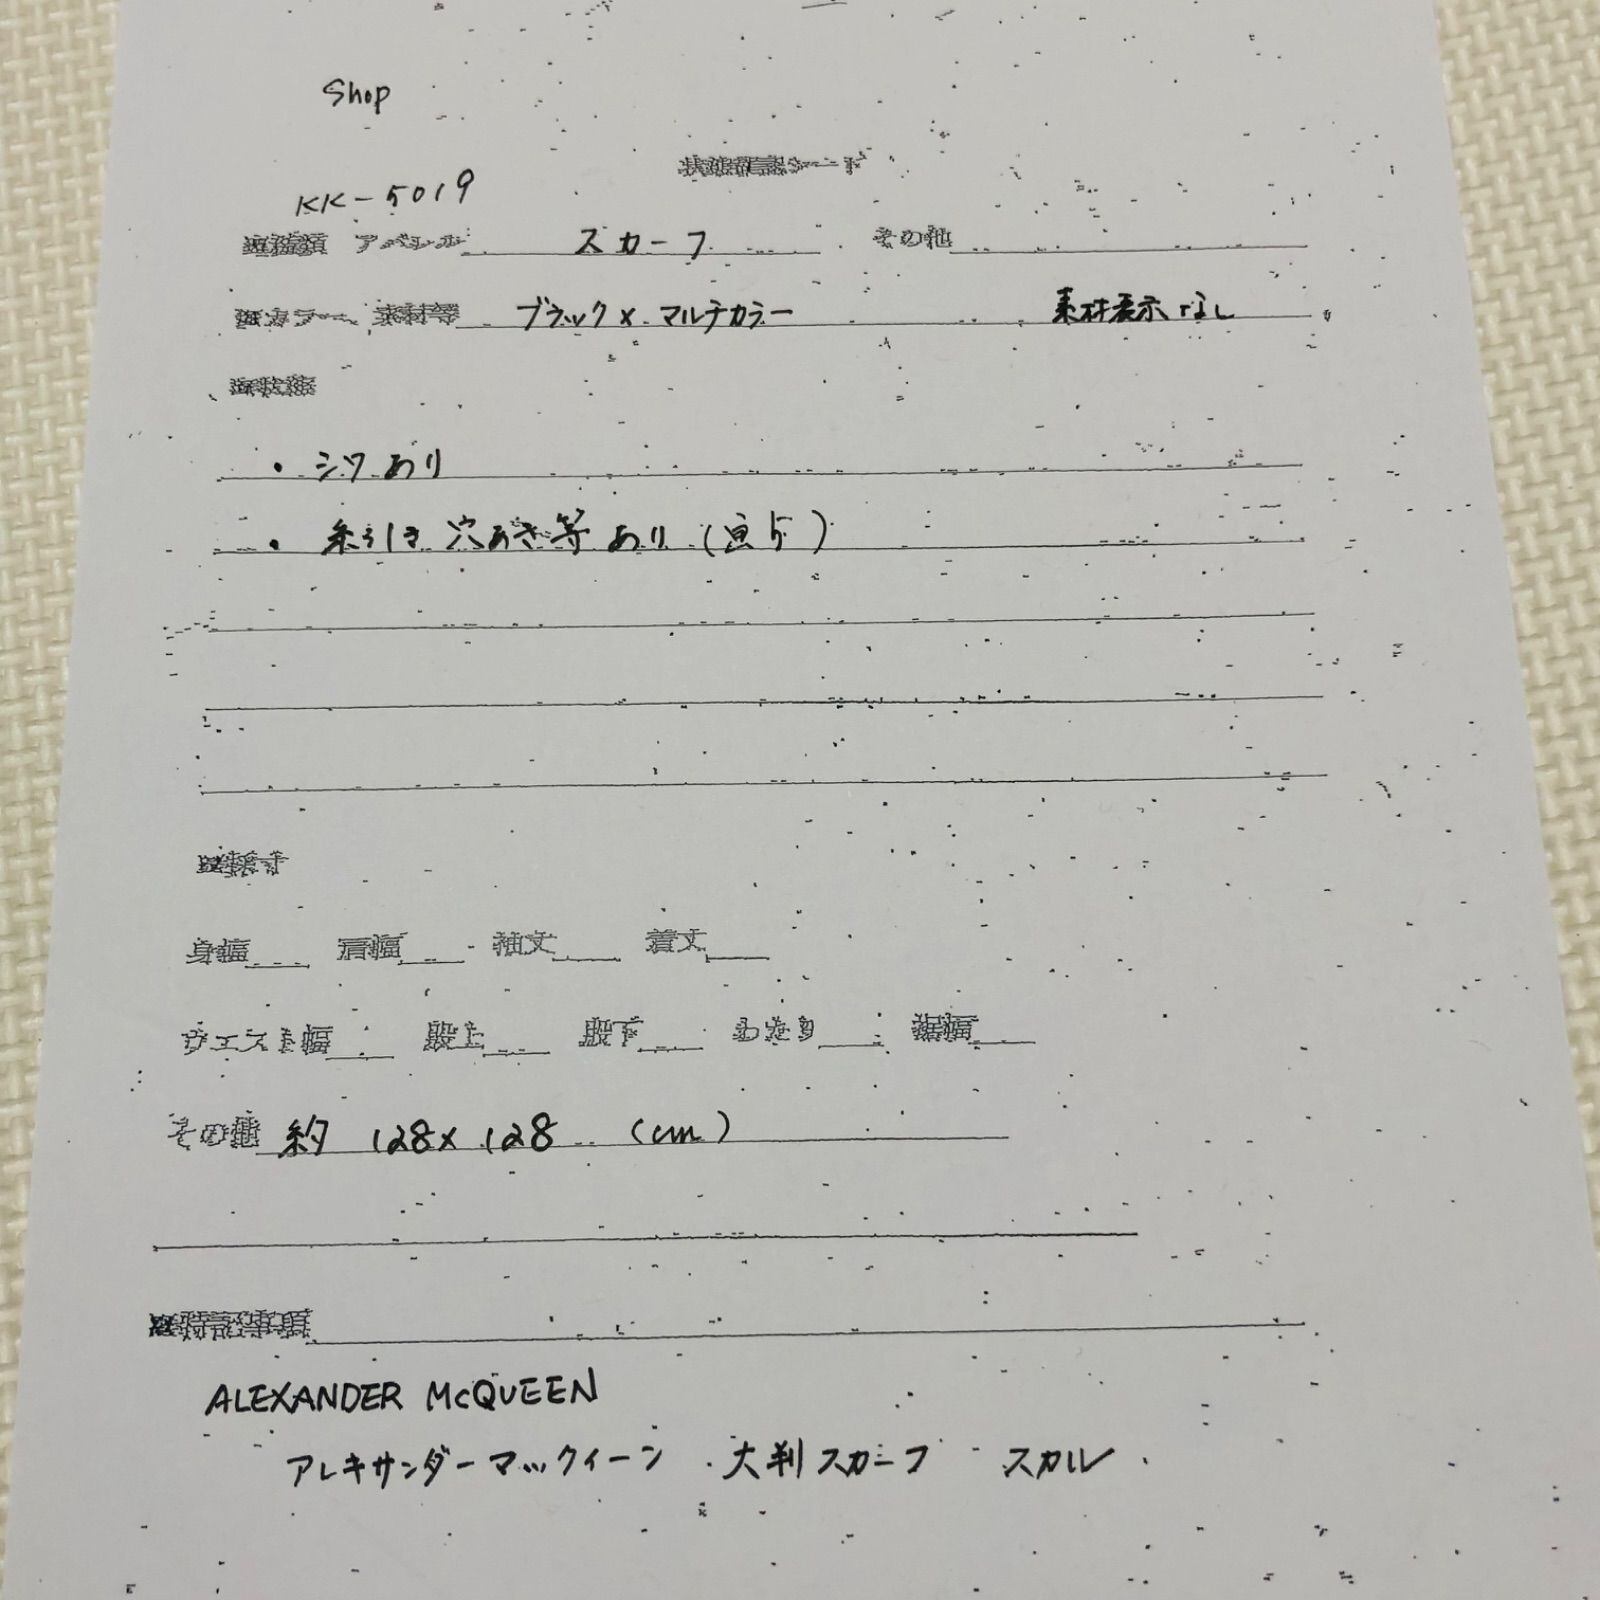 Shop
状態確認シート
KK-5019
アパレル スカーフ その他
カラー、素材等 ブラック×マルチカラー 素材表示なし
・シワあり
・糸引き 穴あき等あり(画5)
採寸
身幅 肩幅 袖丈 着丈
ウエスト幅 股上 股下 わたり 裾幅
その他 約 128×128 (cm)
特記事項
ALEXANDER McQUEEN
アレキサンダーマックィーン 大判スカーフ スカル